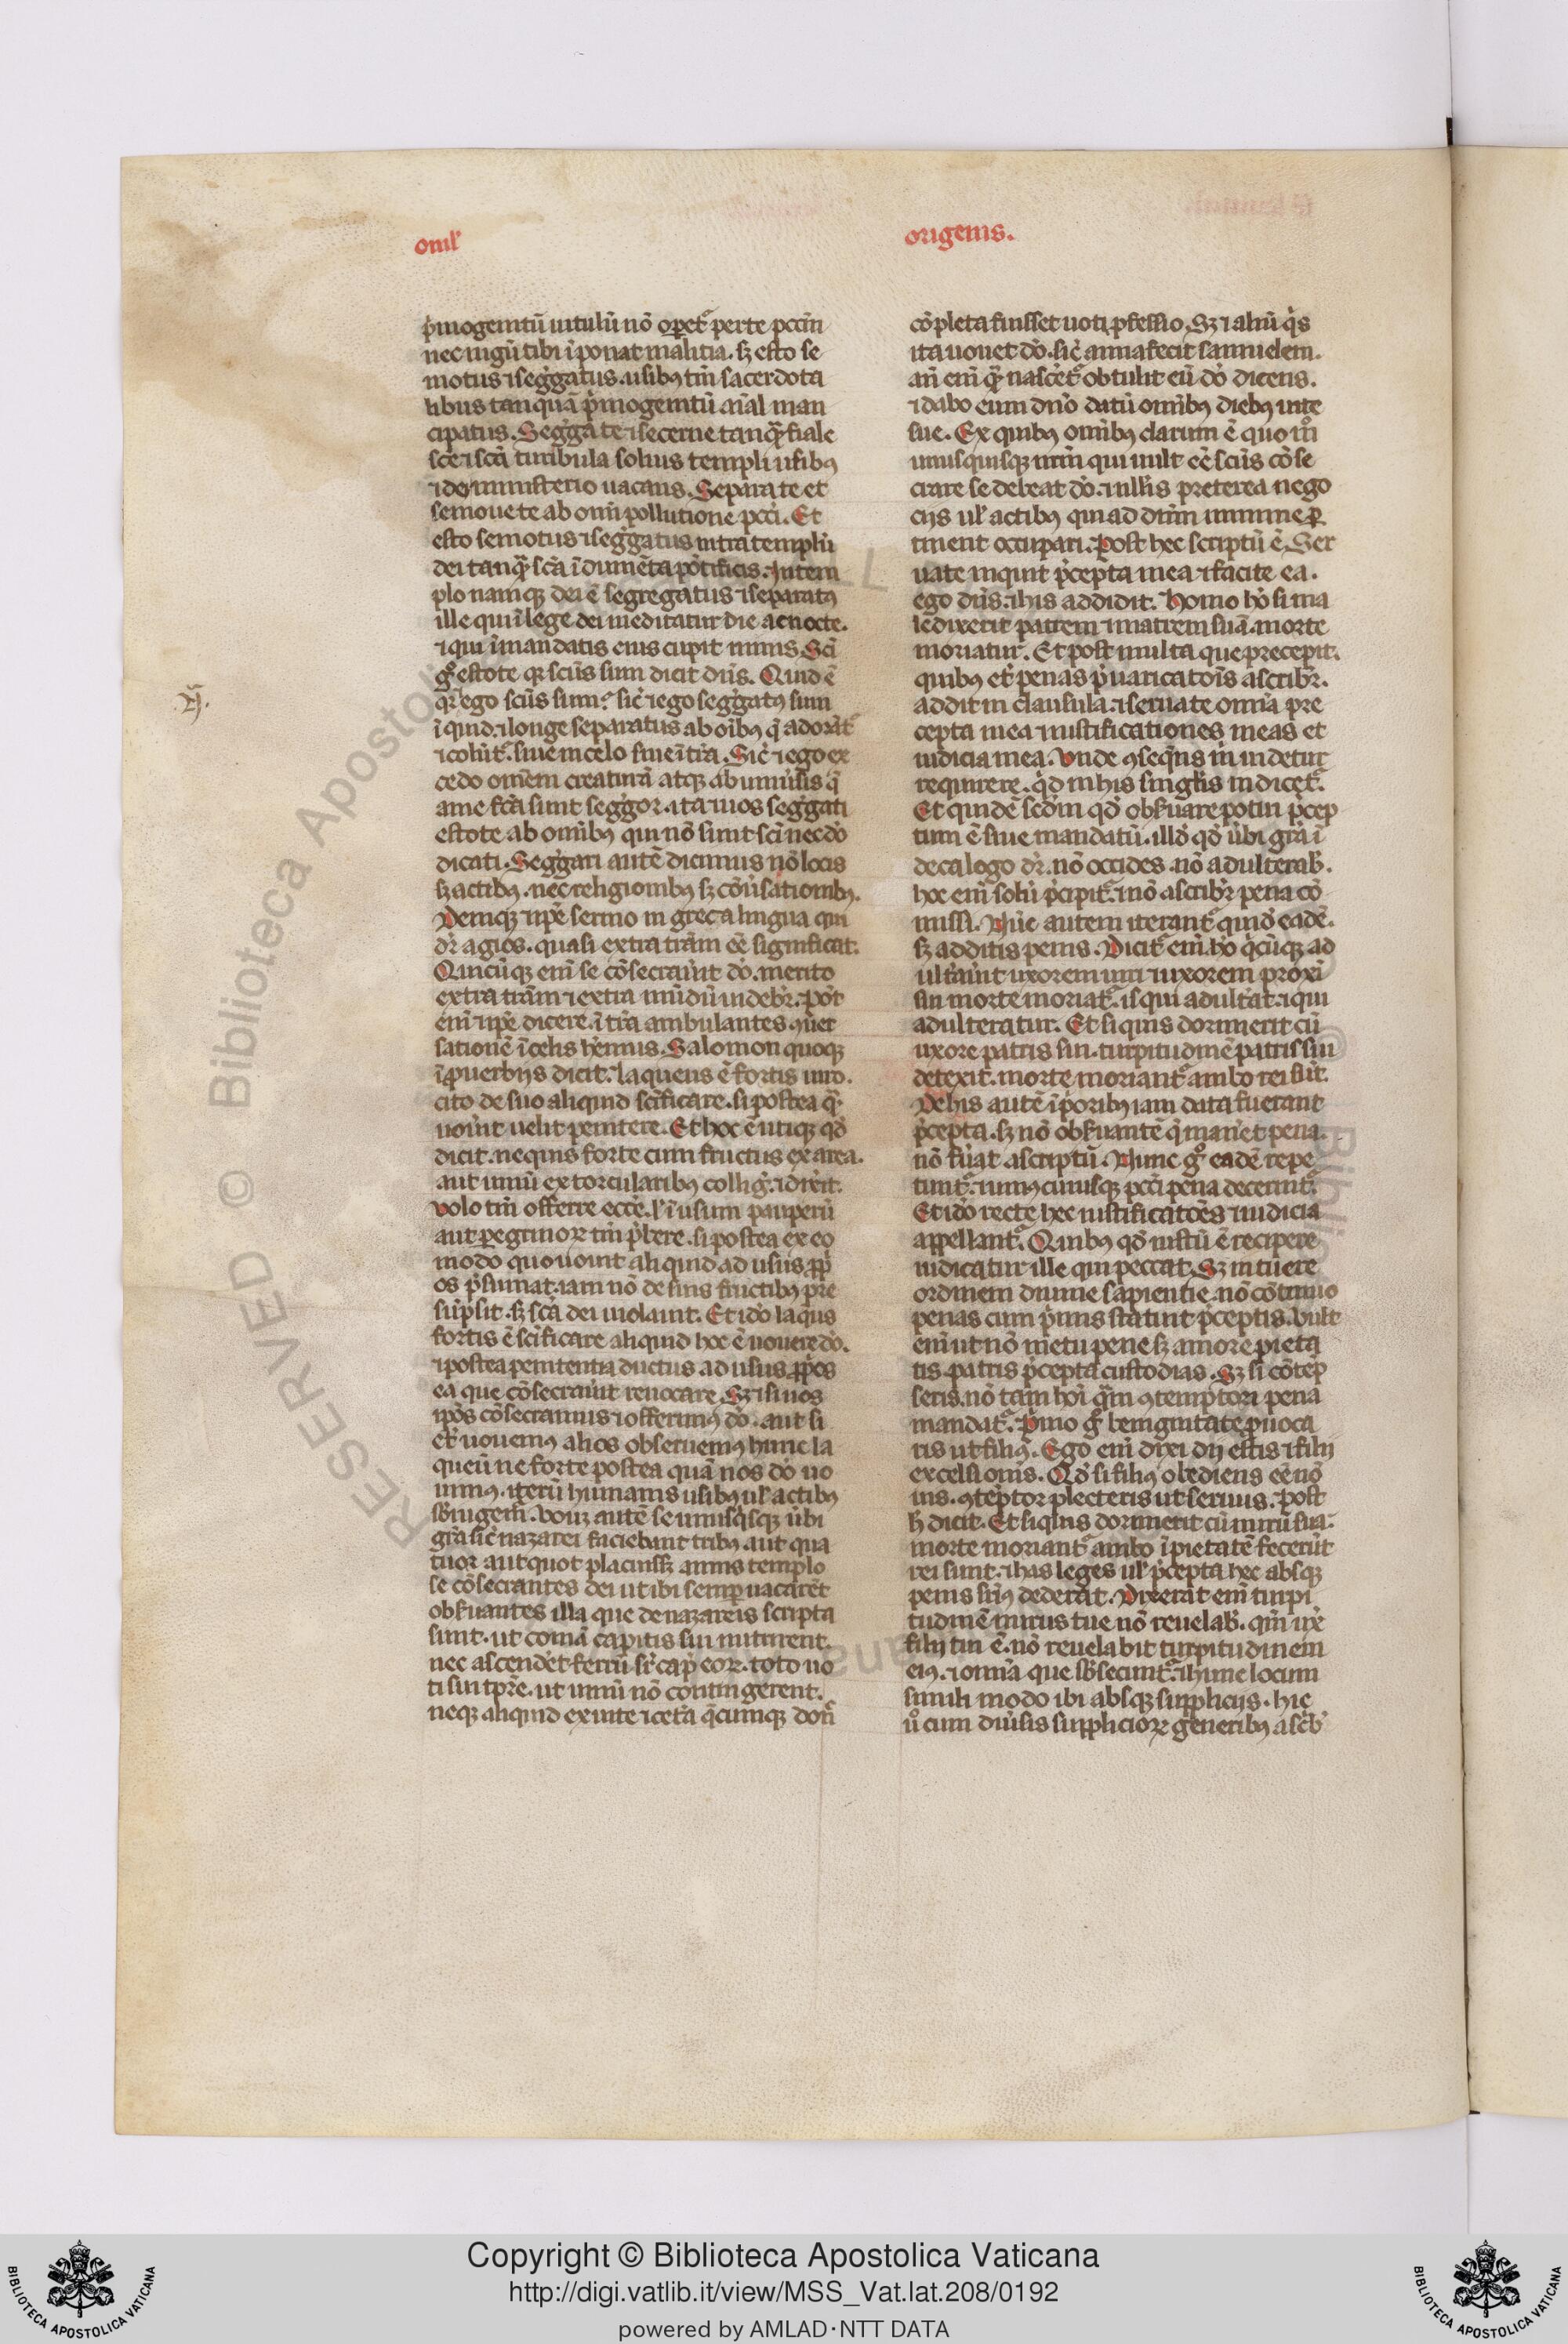 omił
origenis.
p̾mogenitū uitulū nō op̱et᷑ perte pccm̄
nec iugū tibi īponat malitia. sꝫ esto se
motus ⁊seg̾gatus. usibꝰ tm̄ sacerdota
libus tanquā p̾mogenitū aīal man
cipatus. Seg̾ga te ⁊secerne tanq̄ fiale
sc̄e ⁊sc̄a turibula solius templi usibꝰ
⁊dei ministerio uacans. Separa te et
semoue te ab omī pollutione pcc̄i. Et
esto semotus ⁊seg̾gatus intra templū
dei tanq̄ sc̄a īdumēta pōtificis. Intem
plo namqꝫ dei ē segregatus ⁊separatꝰ
ille qui īlege dei meditatur die ac nocte.
⁊qui īmandatis eius cupit nimis. Sc̄i
gͦ estote qꝛ scūs sum dicit dn̄s. Quid ē
qꝛ ego scūs sum? sic̄ ⁊ego seg̾gatꝰ sum
īquid. ⁊longe separatus ab oībꝰ q̄ adorāt᷑
⁊colūt᷑. siue in celo siue ītr̄a. Sic̄ ⁊ego ex
cedo omēm creaturā atqꝫ ab uniuīsis q̄
ame fc̄a sunt seg̾gor. ita ⁊uos seg̾gati
estote ab omībꝰ qui nō sunt sc̄i nec dō
dicati. Seg̾gari autē dicimus nō locis
sꝫ actibꝰ. nec religionibꝰ sꝫ cōūsationibꝰ.
Deniqꝫ ⁊ip̄e sermo in greca lingua qui
dr̄ agios. quasi extra trām cē significat.
Quicūqꝫ enī se cōsecrauīt dō. merito
extra trām ⁊extra mūdū uidebr̄. pōt
enī ⁊ip̄e dicere. ī tr̄a ambulantes ꝯuer
sationē īcelis hēmus. Salomon quoqꝫ
īꝓuerbijs dicit. laqueus ē fortis uiro.
cito de suo aliquid scīficare. si postea q̄
uouīt uelit penitere. Et hoc ē utiqꝫ qd̄
dicit. nequis forte cum fructus ex area.
aut uinū ex torcularibꝰ collig̾. ⁊dixīt.
volo tm̄ offerre ecc̄e. ł īusum pauperū
aut ꝑegrinoꝝ tm̄ p̾bere. si postea ex eo
modo quo uouīt aliquid ad usus ꝓp̾
os p̾sumat. iam nō de suis fructibꝰ pre
sūpsit. sꝫ sc̄a dei uiolauīt. Et idō laq̄us
fortis ē scīficare aliquid hoc ē uouere dō.
⁊postea penitentia ductus ad usus ꝓp̾os
ea que cōsecrauīt reuocare. Sꝫ ⁊si nos
ip̄os cōsecramus ⁊offerimꝰ dō. aut si
et̄ uouemꝰ alios obseruemꝰ hunc la
queū ne forte postea quā nos dō uo
uimꝰ. iterū humanis usibꝰ uł actibꝰ
sb̄iugem̄. Vouꝫ autē se unusq̾sqꝫ ūbi
gr̄a sic̄ nazarei faciebant tribꝰ aut qua
tuor aut quot placuissꝫ annis templo
se cōsecrantes dei ut ibi semꝑ uacarēt
obs̄uantes illa que de nazareis scripta
sunt. ut comā capitis sui nutrirent.
nec ascendet ferrū sr̄ cap̄ eoꝝ. toto uo
ti sui tp̄re. ut uinū nō contingerent.
neqꝫ aliquid exuite ⁊cet̄a q̄cumqꝫ don̄
cōpleta fuisset uoti ꝓfessio. Sꝫ ⁊aliū q̾s
ita uouet dō. sic̄ anna fecit samuelem.
an̄ enī q̄ nascēt᷑ obtulit eū dō dicens.
⁊dabo eum dn̄o datū omībꝰ diebꝰ uite
sue. Ex quibꝰ omībꝰ clarum ē quomͦ
unusquisqꝫ nr̄m qui uult eē scūs cōse
crare se debeat dō. ⁊nllīs preterea nego
cijs uł actibꝰ qui ad dm̄ minime ꝑ
tinent occupari. Post hec scriptū ē. Ser
uate inquit p̾cepta mea ⁊facite ea.
ego dn̄s. ⁊his addidit. Homo hō si ma
ledixerit patrem ⁊matrem suā. morte
moriatur. Et post multa que precepit.
quibꝰ et̄ penas p̾uaricatoīs ascribr̄.
addit in clausula. ⁊seruate omīa pre
cepta mea ⁊iustificationes meas et
iudicia mea. Vnde ꝯseq̄ns m̄ uidetur
requirere. q̾d in his singlīs indicet᷑.
Et quidē scd̄m qd̄ obs̄uare potui p̾cep
tum ē siue mandatū. illd̄ qd̄ ūbi gr̄a ī
decalogo dr̄. nō occides. nō adulterab̾.
hoc enī solū p̾cipit᷑. ⁊nō ascribr̄ pena cō
missi. Nūc autem iterant᷑ quidē eadē.
sꝫ additis penis. Dicit enī. hō q̾cūqꝫ ad
ult̾auīt uxorem uiri ⁊uxorem proxi
sui morte moriat᷑. is qui adult̾at. ⁊qui
adulteratur. Et siquis dormierit cū
uxore patris sui. turpitudinē patris sui
detexit. morte moriant᷑ ambo rei sūt.
De his autē īp̾oribꝰ iam data fuerant
p̾cepta. sꝫ nō obs̄uante q̄ manet pena
nō fūat ascriptū. Nunc gͦ eadē repe
tunt᷑. ⁊unꝰcuiusqꝫ pcc̄i pena decernit᷑.
Et idō recte hec iustificatōes ⁊iudicia
appellant᷑. Quibꝰ qd̄ iustū ē recipere
iudicatur ille qui peccat. Sꝫ intuere
ordinem diuine sapientie. nō cōtinuo
penas cum p̾mis statuit p̾ceptis. Vult
enī ut nō metu pene sꝫ amore pieta
tis patris p̾cepta custodias. Sꝫ si cōtēp
seris. nō tam hoī q̄m ꝯtemptori pena
mandat᷑. P̾mo gͦ benignitate ꝓuoca
ris ut filiꝰ. Ego enī dixi dij estis ⁊filij
excelsi omīs. Qd̄ si filiꝰ obediens eē nō
uis. ꝯtēptor plecteris ut seruus. Post
h̄ dicit. Et siquis dormierit cū nurū sua.
morte moriant᷑ ambo īpietatē fecerūt
rei sunt. ⁊has leges uł p̾cepta hec absqꝫ
penis sup̾iꝰ dederat. Dixerat enī turpi
tudinē nurus tue nō reuelab̾. qm̄ ux̄
filij tui ē. nō reuelabit turpitudinem
eiꝰ. ⁊omīa que sb̄secunt᷑. ⁊hunc locum
simili modo ibi absqꝫ supplicijs. hic
uͦ cum diuīsis supplicioꝝ generibꝰ ascb̾
RESERVED © Biblioteca Apostolica
Copyright © Biblioteca Apostolica Vaticana
http://digi.vatlib.it/view/MSS_Vat.lat.208/0192
powered by AMLAD·NTT DATA
BIBLIOTECA APOSTOLICA VATICANA
BIBLIOTECA APOSTOLICA VATICANA